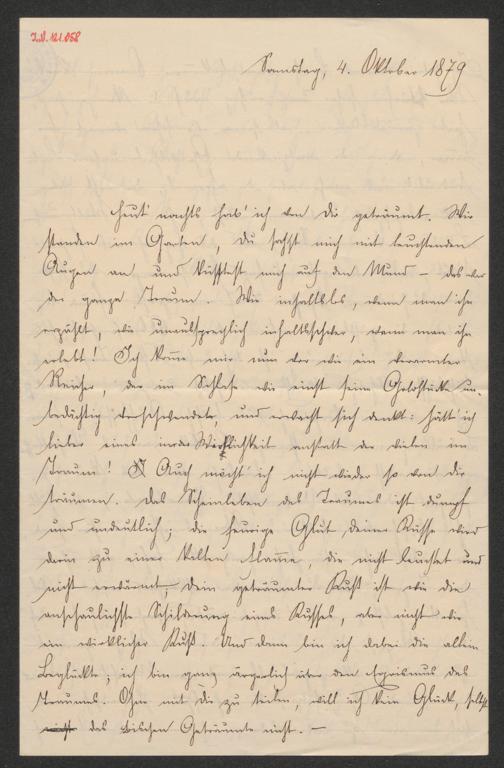 I.N. 121.058
Samstag, 4. Oktober 1879
Heut' nachts hab' ich von Dir geträumt. Wir
standen im Garten, Du sahst mich mit leuchtenden
Augen an und küsstest mich auf den Mund – das war
der ganze Traum. Wie inhaltlos, wenn man ihn
erzählt, wie unaussprechlich inhaltsschwer, wenn man ihn
erlebt! Ich komme mir nun vor wie ein verarmter
Reicher, der im Schlafe wie einst seine Goldstücke un-
bedächtig verschwendete, und erwacht sich denkt: hätt' ich
lieber eines in der Wirklichkeit anstatt der vielen im
Traum! Auch möcht' ich nicht wieder so von Dir
träumen. Das Scheinleben des Traumes ist dumpf
und undeutlich; die feurige Glut Deiner Küsse wird
darin zu einer kalten Flamme, die nicht leuchtet und
nicht erwärmt; Dein geträumter Kuß ist wie die
anschaulichste Schilderung eines Kusses, aber nicht wie
ein wirklicher Kuß. Und dann bin ich dabei die allein
Beglückte; ich bin ganz ärgerlich über den Egoismus des
Traumes. Ohne mit Dir zu teilen, will ich kein Glück, selbst
das bischen Geträumte nicht. –